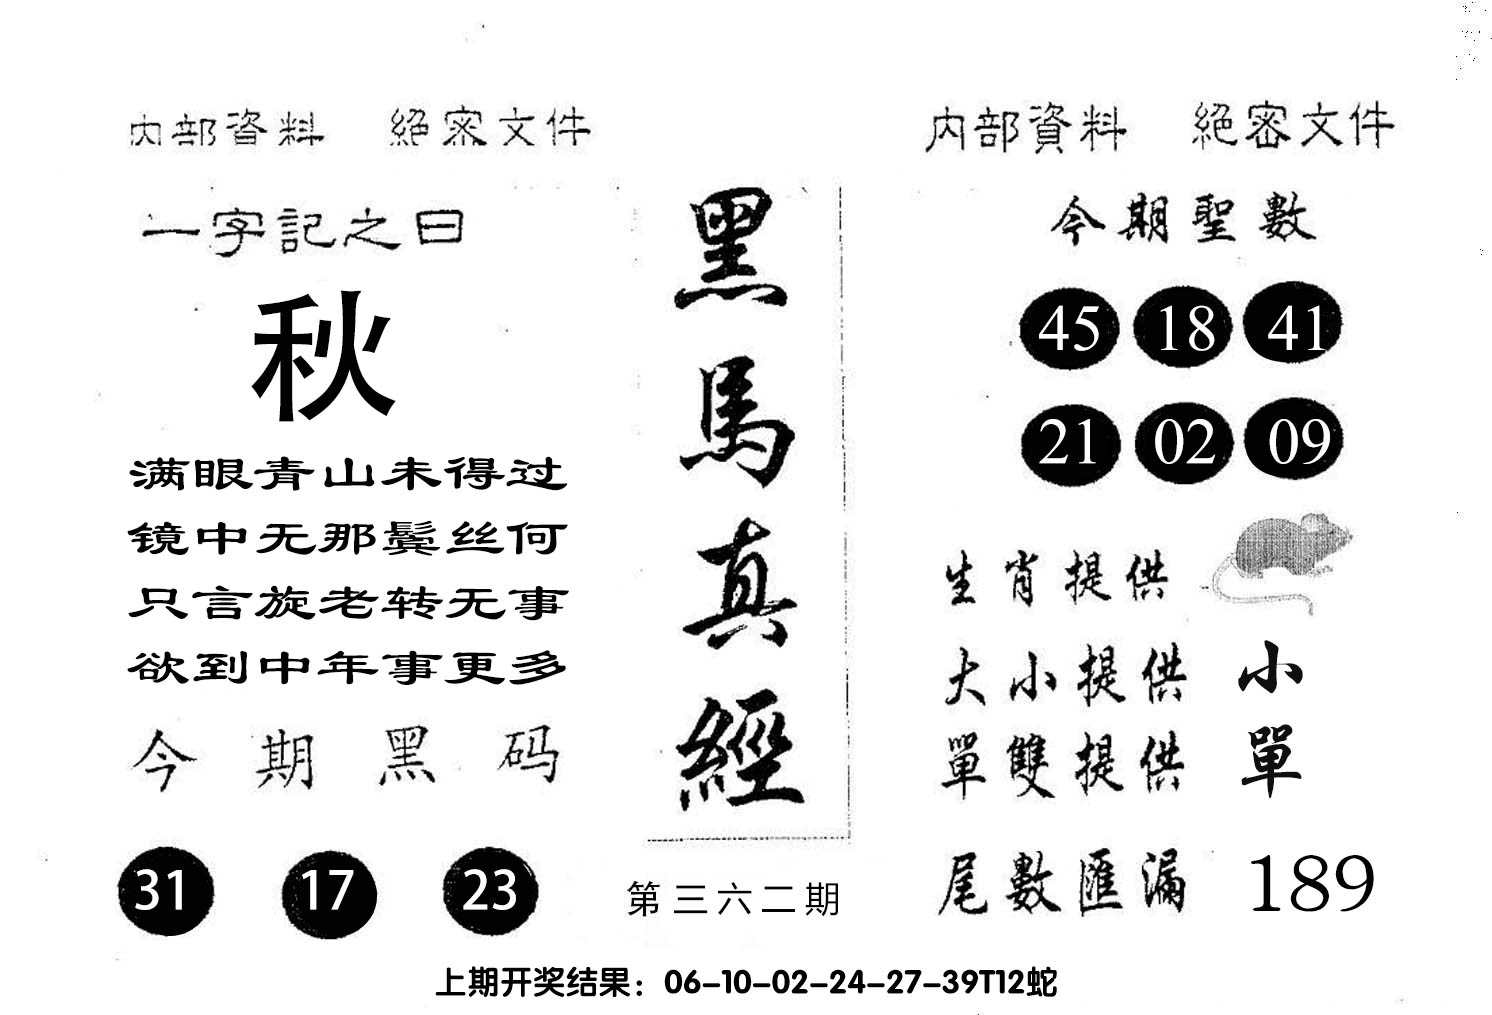 内部資料 絕密文件
一字記之曰
秋
满眼青山未得过
镜中无那鬓丝何
只言旋老转无事
欲到中年事更多
今期黑码
31 17 23
黑馬真經
第三六二期
内部資料 絕密文件
今期聖數
45 18 41
21 02 09
生肖提供
大小提供 小
單雙提供 單
尾數匯漏 189
上期开奖结果：06-10-02-24-27-39T12蛇